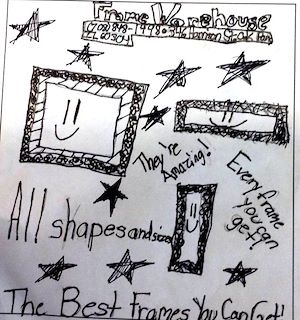 Frame Warehouse
They're
Amazing!
Every frame
you can
get!
All shapes and sizes
The Best Frames You Can Get!